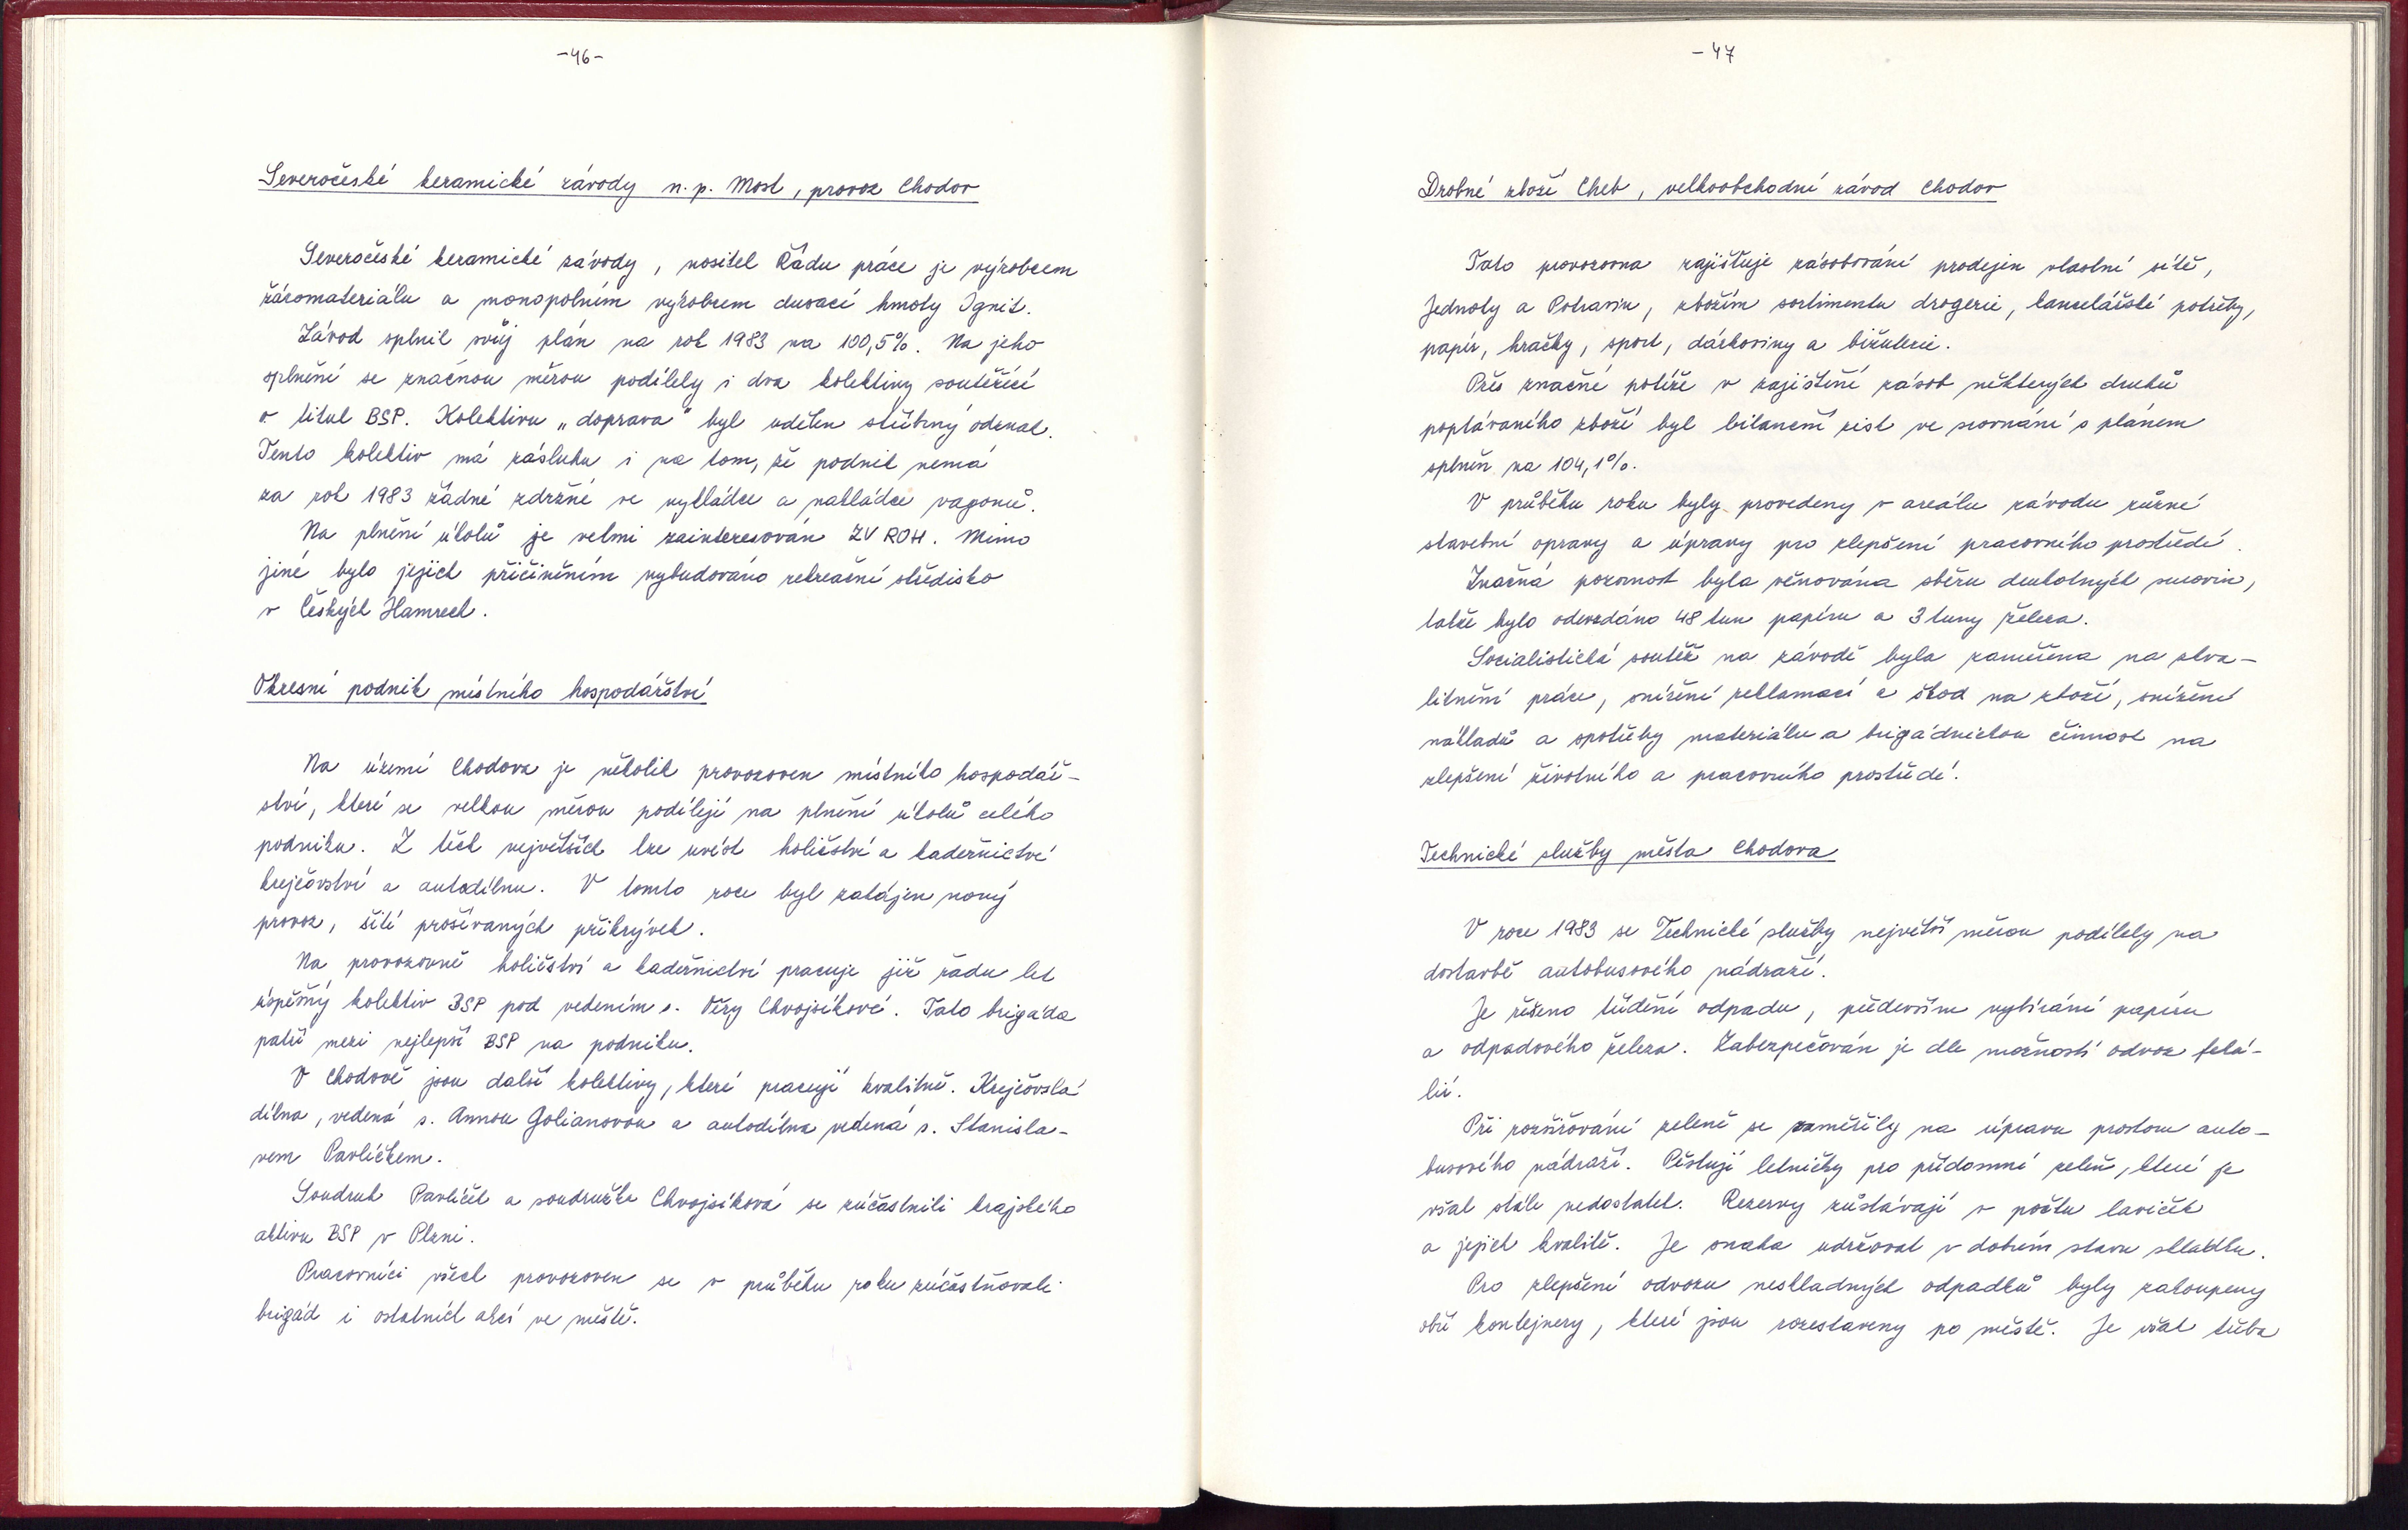 -46-
Severočeské keramické závody n. p. Most, provoz Chodov
Severočeské keramické závody, nositel Řádu práce je výrobcem
žáromateriálu a monopolním výrobcem dusací hmoty Ignit.
Závod splnil svůj plán na rok 1983 na 100,5%. Na jeho
splnění se značnou měrou podílely i dva kolektivy soutěžící
o titul BSP. Kolektivu „doprava" byl udělen stříbrný odznak.
Tento kolektiv má zásluhu i na tom, že podnik nemá
za rok 1983 žádné zdržné ve vykládce a nakládce vagonů.
Na plnění úkolů je velmi zainteresován ZV ROH. Mimo
jiné bylo jejich přičiněním vybudováno rekreační středisko
v Českých Hamrech.
Okresní podnik místního hospodářství
Na území Chodova je několik provozoven místního hospodář-
ství, které se velkou měrou podílejí na plnění úkolů celého
podniku. Z těch největších lze uvést holičství a kadeřnictví
krejčovství a autodílnu. V tomto roce byl zahájen nový
provoz, šití prošívaných přikrývek.
Na provozovně holičství a kadeřnictví pracuje již řadu let
úspěšný kolektiv BSP pod vedením s. Věry Chvojsíkové. Tato brigáda
patří mezi nejlepší BSP na podniku.
V Chodově jsou další kolektivy, které pracují kvalitně. Krejčovská
dílna, vedená s. Annou Golianovou a autodílna vedená s. Stanisla-
vem Pavlíčkem.
Soudruh Pavlíček a soudružka Chvojsíková se zúčastnili krajského
aktivu BSP v Plzni.
Pracovníci všech provozoven se v průběhu roku zúčastňovali
brigád i ostatních akcí ve městě.
- 47
Drobné zboží Cheb, velkoobchodní závod Chodov
Tato provozovna zajišťuje zásobování prodejen vlastní sítě,
Jednoty a Potravin, zbožím sortimentu drogerie, kancelářské potřeby,
papír, hračky, sport, dárkoviny a bižuterie.
Přes značné potíže v zajištění zásob některých druhů
poptávaného zboží byl bilanční zisk ve srovnání s plánem
splněn na 104,1%.
V průběhu roku byly provedeny v areálu závodu různé
stavební opravy a úpravy pro zlepšení pracovního prostředí.
Značná pozornost byla věnována sběru druhotných surovin,
takže bylo odevzdáno 48 tun papíru a 3 tuny železa.
Socialistická soutěž na závodě byla zaměřena na zkva-
litnění práce, snížení reklamací a škod na zboží, snížení
nákladů a spotřeby materiálu a brigádnickou činnost na
zlepšení životního a pracovního prostředí.
Technické služby města Chodova
V roce 1983 se Technické služby největší měrou podílely na
dostavbě autobusového nádraží.
Je řešeno třídění odpadu, především vybírání papíru
a odpadového železa. Zabezpečován je dle možností odvoz feká-
lií.
Při rozšiřování zeleně se zaměřily na úpravu prostoru auto-
busového nádraží. Pěstují letničky pro přídomní zeleň, které je
však stále nedostatek. Rezervy zůstávají v počtu laviček
a jejich kvalitě. Je snaha udržovat v dobrém stavu skládku.
Pro zlepšení odvozu neskladných odpadků byly zakoupeny
obří kontejnery, které jsou rozestaveny po městě. Je však třeba